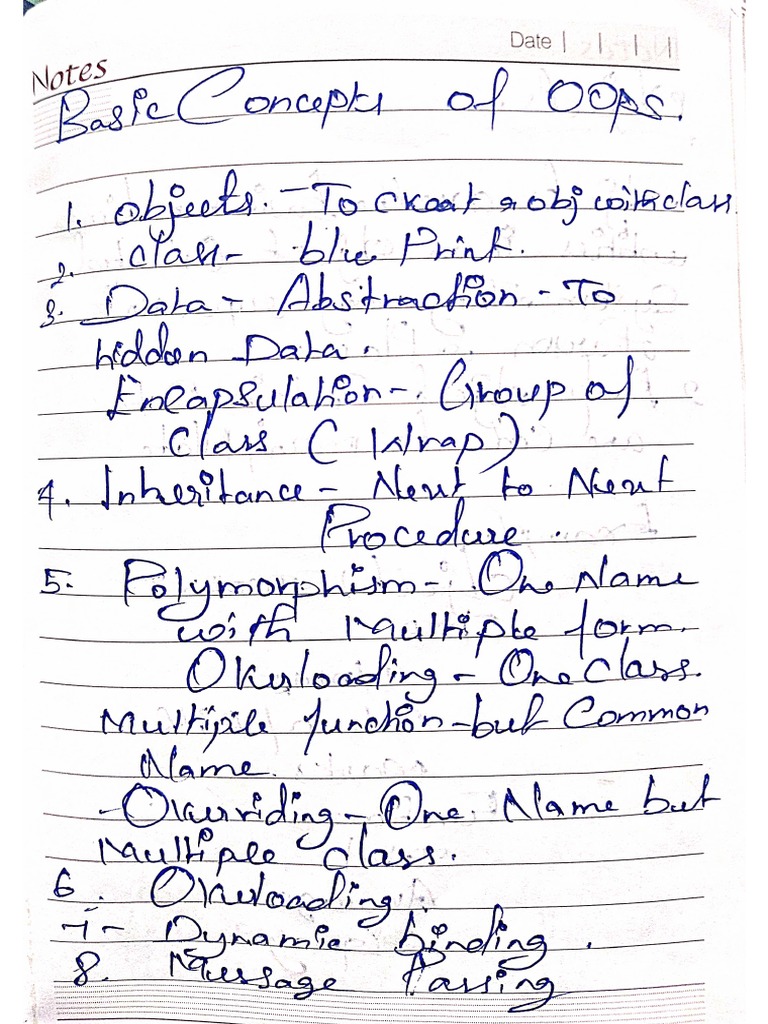 Date
Notes
Basic Concepts of OOPS.
1. Objects. - To creat a obj with class
2. class - blue Print.
3. Data - Abstraction - To
hidden Data.
Encapsulation - Group of
Class (Wrap)
4. Inheritance - Next to Next
Procedure.
5. Polymorphism - One Name
with Multiple form.
Overloading - One Class.
Multiple function - but Common
Name.
- Overriding - One Name but
Multiple class.
6. Overloading.
7 - Dynamic binding.
8. Message Passing